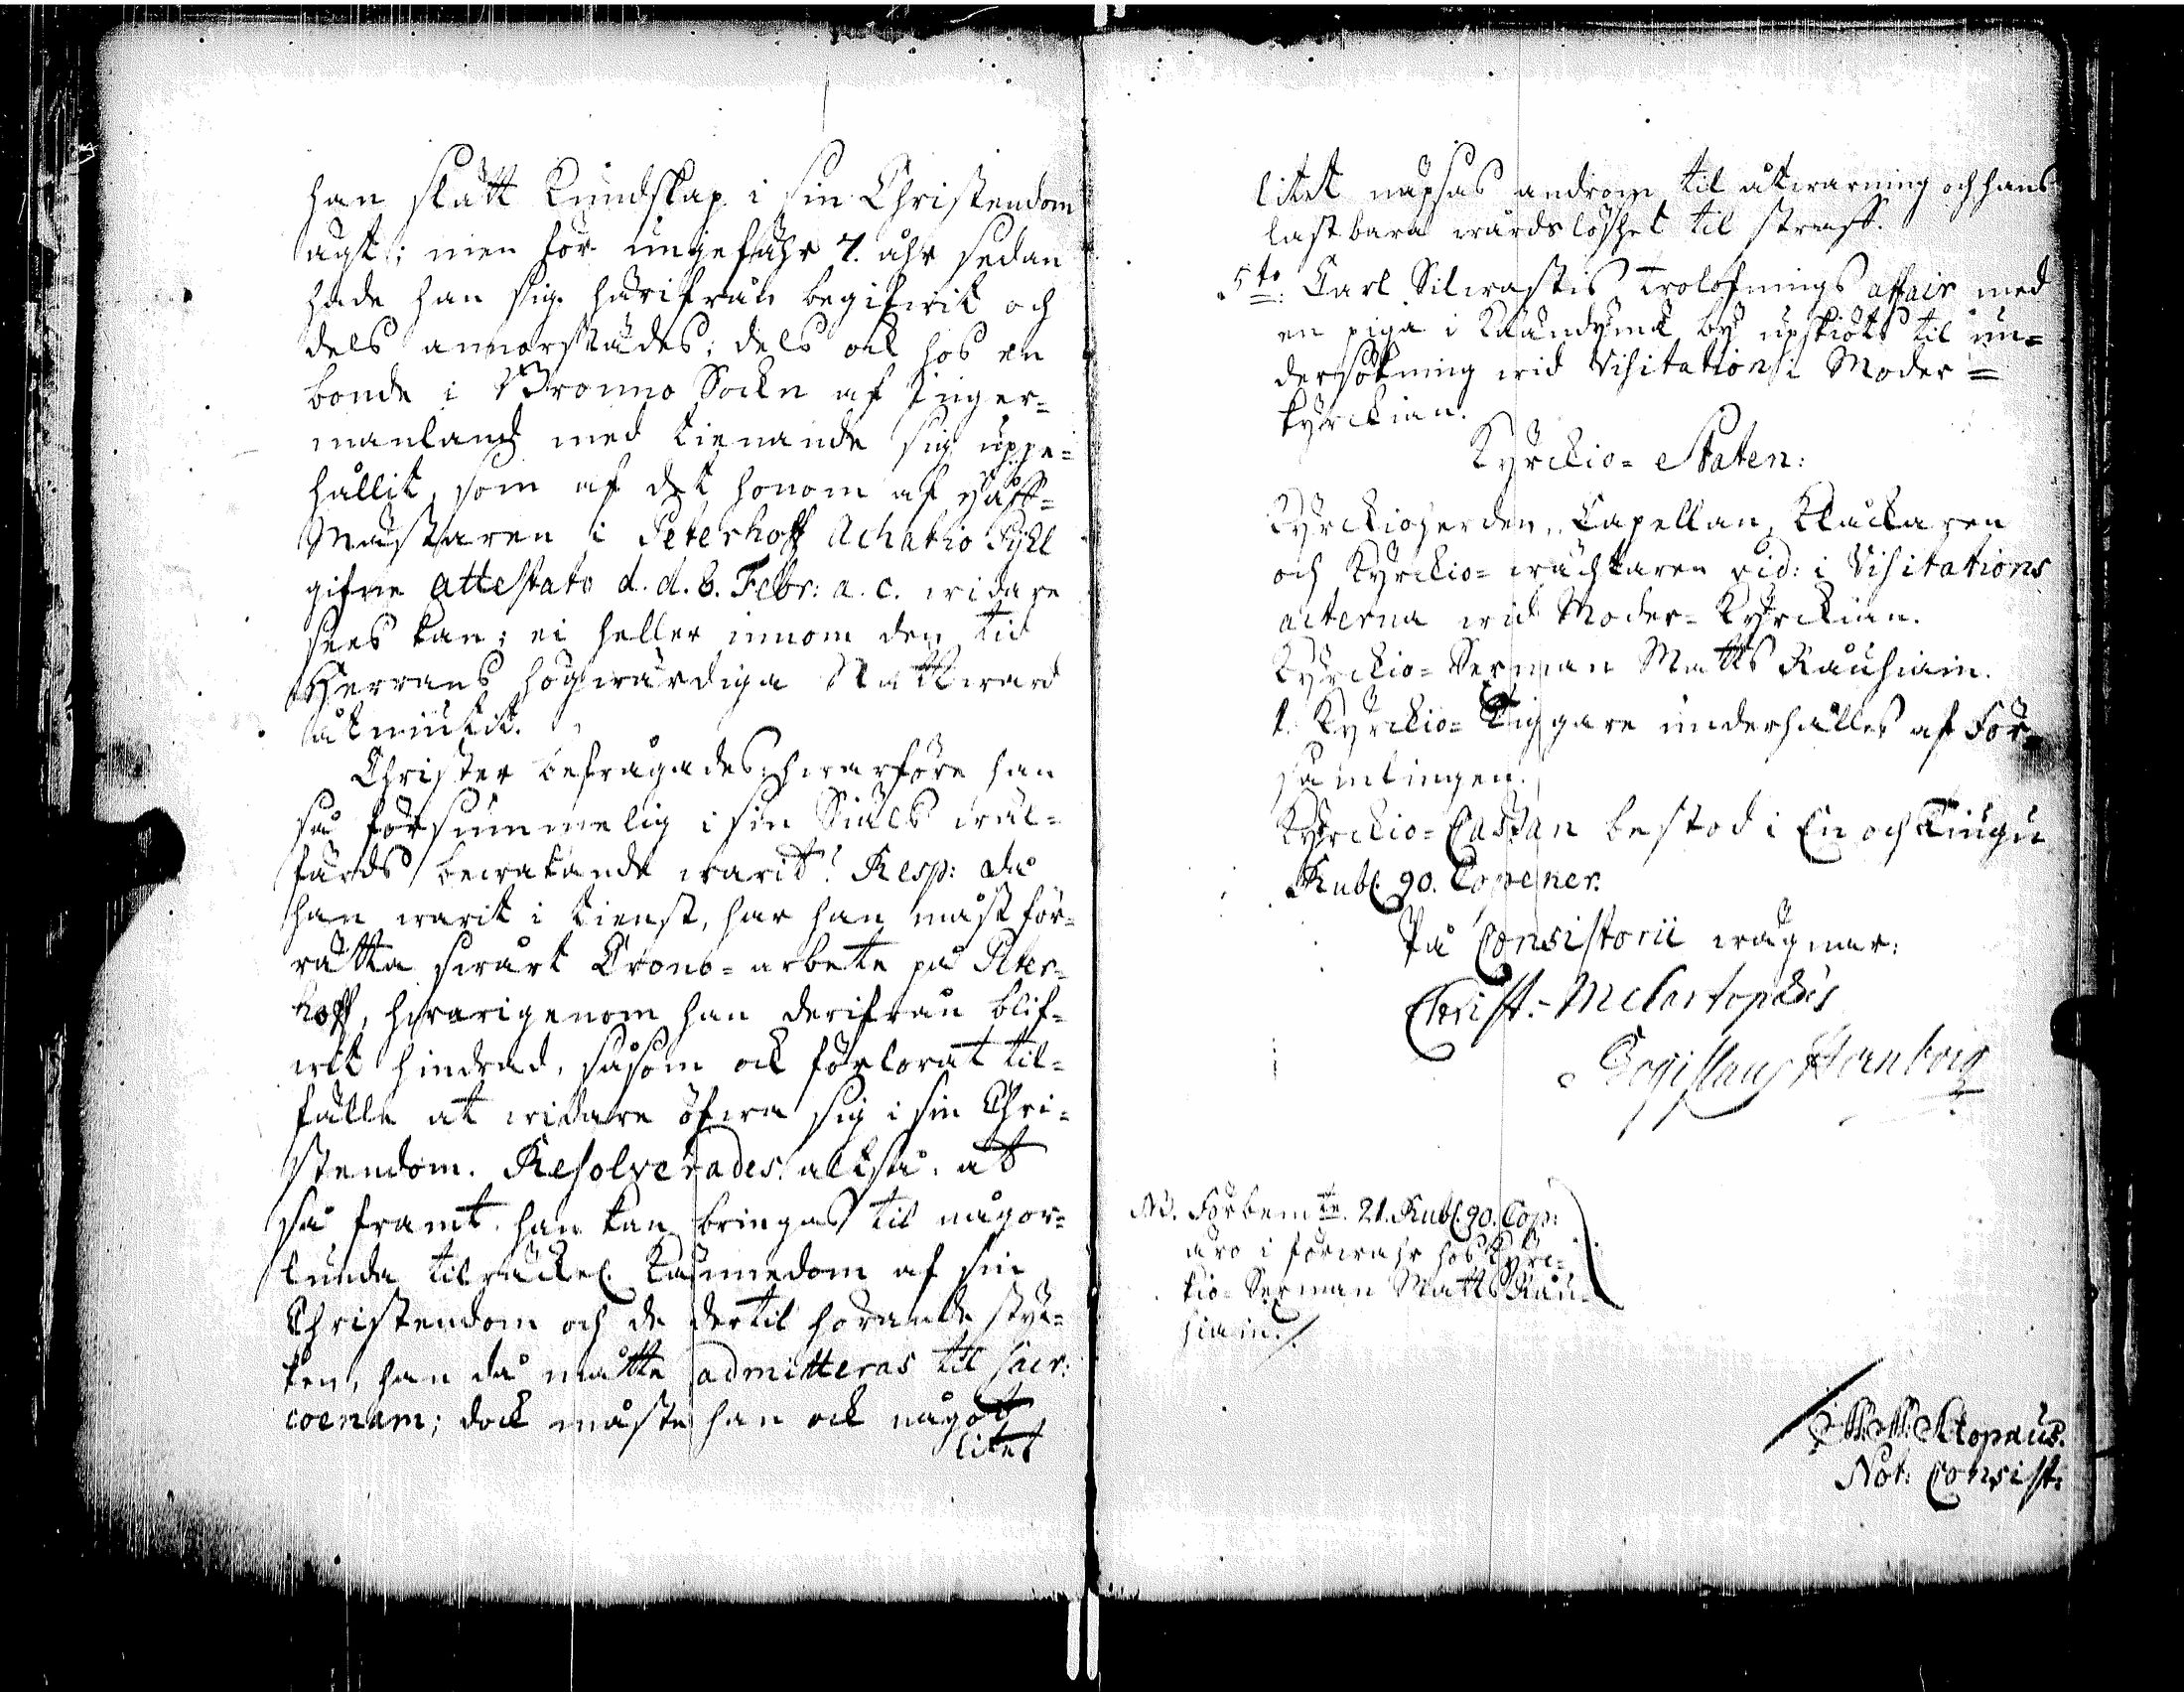 han slätt kundskap i sin Christendom
ägt; men för ungefähr 7. åhr sedan
hade han sig härifrån begifwit och
dels annorstädes, dels ock hos en
bonde i Bronno Sockn af Inger=
manland med tienande sig uppe=
hållit, som af det honom af Häff=
Mästaren i Peterhoff Achatio Pijhl
gifne attestato d. d. 8. Febr: a. c. widare
sees kan; ei heller innom den tid
Herrans högwärdiga Nattward
åtniutit.
Christer befrågades, hwarföre han
så försummelig i sin Siäls wäl=
färds bewakande warit? Resp: då
han warit i tienst, har han måst för=
rätta swårt Crono=arbete på Peter=
hoff, hwarigenom han derifrån blif=
wit hindrad, såsom ock förlorat til=
fälle at widare öfwa sig i sin Chri=
stendom. Resolverades altså, at
så framt han kan bringas til någor=
lunda tilräckel. kännedom af sin
Christendom och de dertil hörande styc=
ken, han då måtte admitteras til sacr:
coenam; dock måste han ock något
litet
litet näpsas androm til åtwarning och hans
lastbara wårdslöshet til straff.
5to: Carl Silwastis trolofnings affair med
en piga i by upskiöts til un=
dersökning wid Visitation i Moder=
kyrckian.
Kyrckio=Staten:
Kyrckioherden, Capellan, Klåckaren
och Kyrckio=wächtaren vid: i Visitations
acterna wid Moder=Kyrckian.
Kyrckio=Serman Matts Rauhiain.
1. Kyrckio=Tiggare underhålles af För=
samlingen.
Kyrckio=Cassan bestod i En och Tiugu
Rubl. 90. Copeker.
På Consistorii wägnar:
Christ: Melartopæus
Bogislaus Hornborg
NB. Förbemte. 21. Rubl. 90. Cop:
äro i förwahr hos Kyrc=
kio=Serman Matts Rau=
hiain./.
Not: Consist: